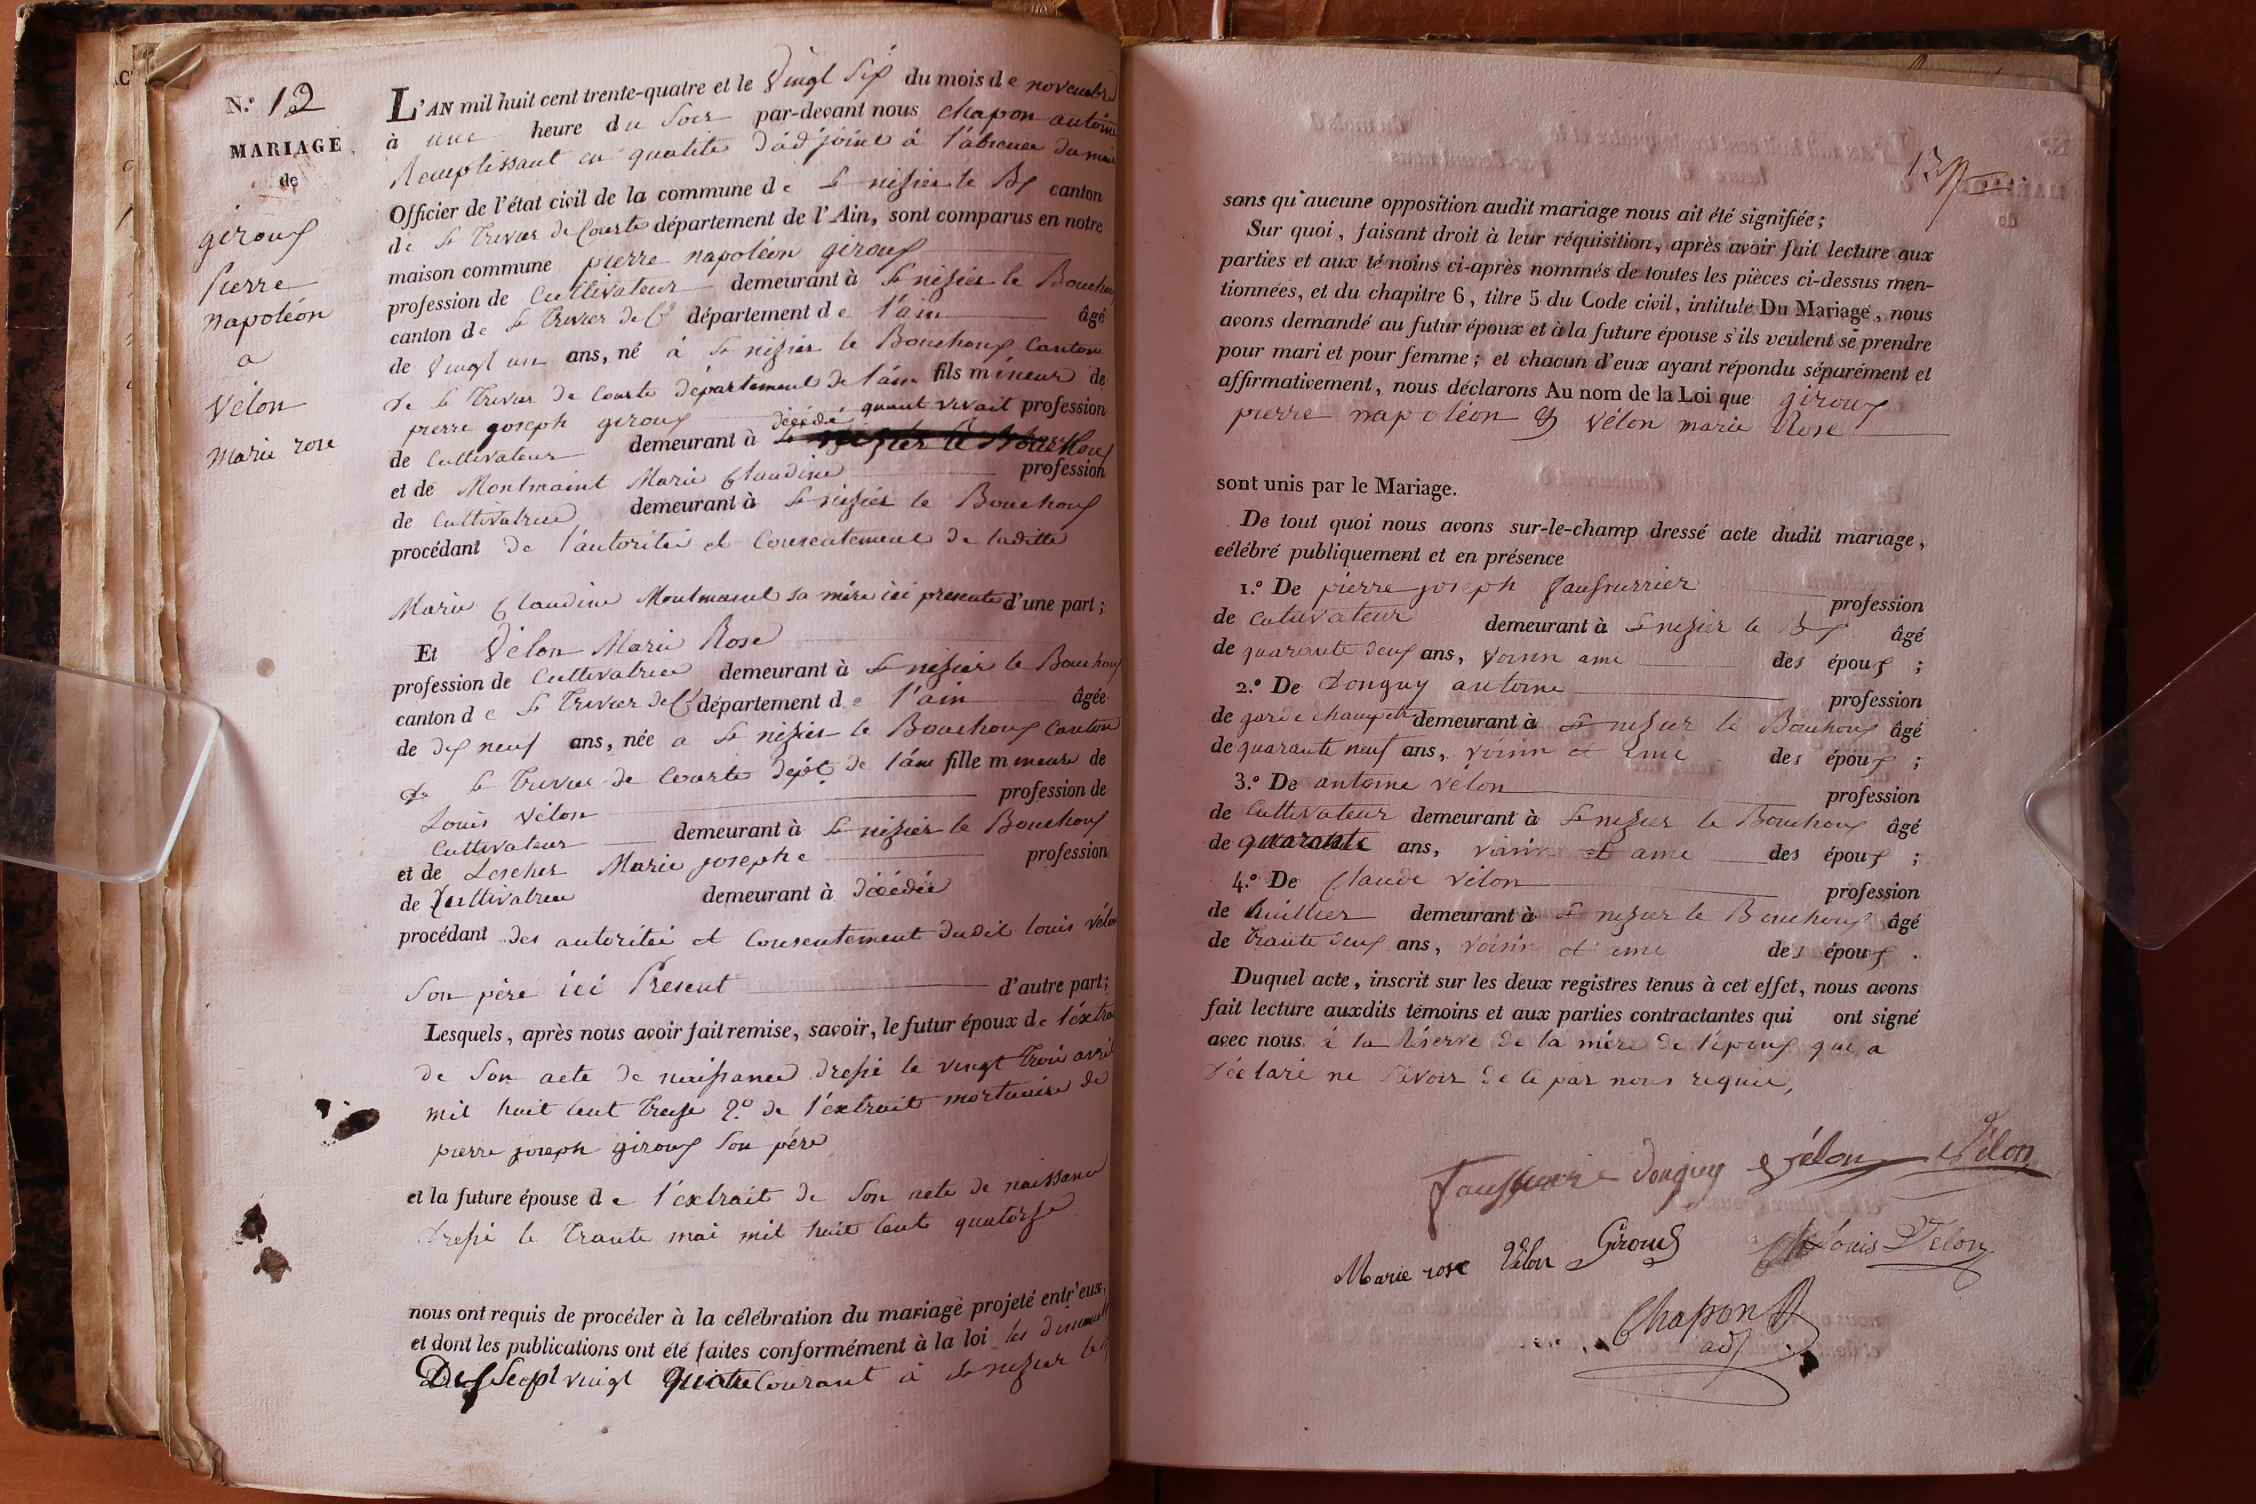 N.º 12
MARIAGE
de
giroux
Pierre
napoléon
a
Vélon
Marie rose
L'AN mil huit cent trente-quatre et le Vingt Six du mois de novembre
à une heure du Soir par-devant nous Chapon antoine
Remplissant en qualité d'adjoint à l'absence du maire
Officier de l'état civil de la commune de St nizier le Bx canton
de St Trivier de Courte département de l'Ain, sont comparus en notre
maison commune pierre napoléon giroux
profession de Cultivateur demeurant à St nizier le Bouchoux
canton de St Trivier de Cte département de l'ain âgé
de Vingt un ans, né à St nizier le Bouchoux Canton
de St Trivier de Courte département de l'ain fils mineur de
pierre joseph giroux décédé quant vivait profession
de Cultivateur demeurant à St nizier le Bouchoux
et de Montmaint Marie Claudine profession
de Cultivatrice demeurant à St nizier le Bouchoux
procédant de l'autorité et Consentement de laditte
Marie Claudine Montmaint sa mère ici presente d'une part;
Et Vélon Marie Rose
profession de Cultivatrice demeurant à St nizier le Bouchoux
canton de St Trivier de Cte département de l'ain âgée
de dix neuf ans, née a St nizier le Bouchoux Canton
de St Trivier de Courte dépt. de l'ain fille mineure de
Louis Vélon profession de
Cultivateur demeurant à St nizier le Bouchoux
et de Lescher Marie josephe profession
de Cultivatrice demeurant à décédée
procédant des autorité et Consentement dudit louis vélon
Son père ici Présent d'autre part;
Lesquels, après nous avoir fait remise, savoir, le futur époux de l'éxtrait
de Son acte de naissance dressé le vingt trois avril
mil huit Cent treize 2.º de l'extrait mortuaire de
pierre joseph giroux Son père
et la future épouse de l'éxtrait de Son acte de naissance
dressé le trante mai mil huit Cent quatorze
nous ont requis de procéder à la célébration du mariage projeté entr'eux,
et dont les publications ont été faites conformément à la loi les dimanches
Dix Sept vingt quatre Courant à St nizier le Bx
sans qu'aucune opposition audit mariage nous ait été signifiée;
Sur quoi, faisant droit à leur réquisition, après avoir fait lecture aux
parties et aux témoins ci-après nommés de toutes les pièces ci-dessus men-
tionnées, et du chapitre 6, titre 5 du Code civil, intitulé Du Mariage, nous
avons demandé au futur époux et à la future épouse s'ils veulent se prendre
pour mari et pour femme; et chacun d'eux ayant répondu séparément et
affirmativement, nous déclarons Au nom de la Loi que giroux
pierre napoléon et Vélon marie Rose
sont unis par le Mariage.
De tout quoi nous avons sur-le-champ dressé acte dudit mariage,
célébré publiquement et en présence
1.º De pierre joseph Faussurrier profession
de Cultivateur demeurant à St nizier le Bx âgé
de quarante deux ans, Voisin ami des époux;
2.º De Donguy antoine profession
de garde champêtre demeurant à St nizier le Bouchoux âgé
de quarante neuf ans, voisin et ami des époux;
3.º De antoine Vélon profession
de Cultivateur demeurant à St nizier le Bouchoux âgé
de quarante ans, voisin et ami des époux;
4.º De Claude Vélon profession
de huillier demeurant à St nizier le Bouchoux âgé
de trante deux ans, voisin et ami des époux.
Duquel acte, inscrit sur les deux registres tenus à cet effet, nous avons
fait lecture auxdits témoins et aux parties contractantes qui ont signé
avec nous à la Réserve de la mère de l'époux qui a
déclaré ne Savoir de ce par nous requis,
Donguy Vélon Vélon
Marie rose Vélon Giroux Louis Vélon
Chapon
adj